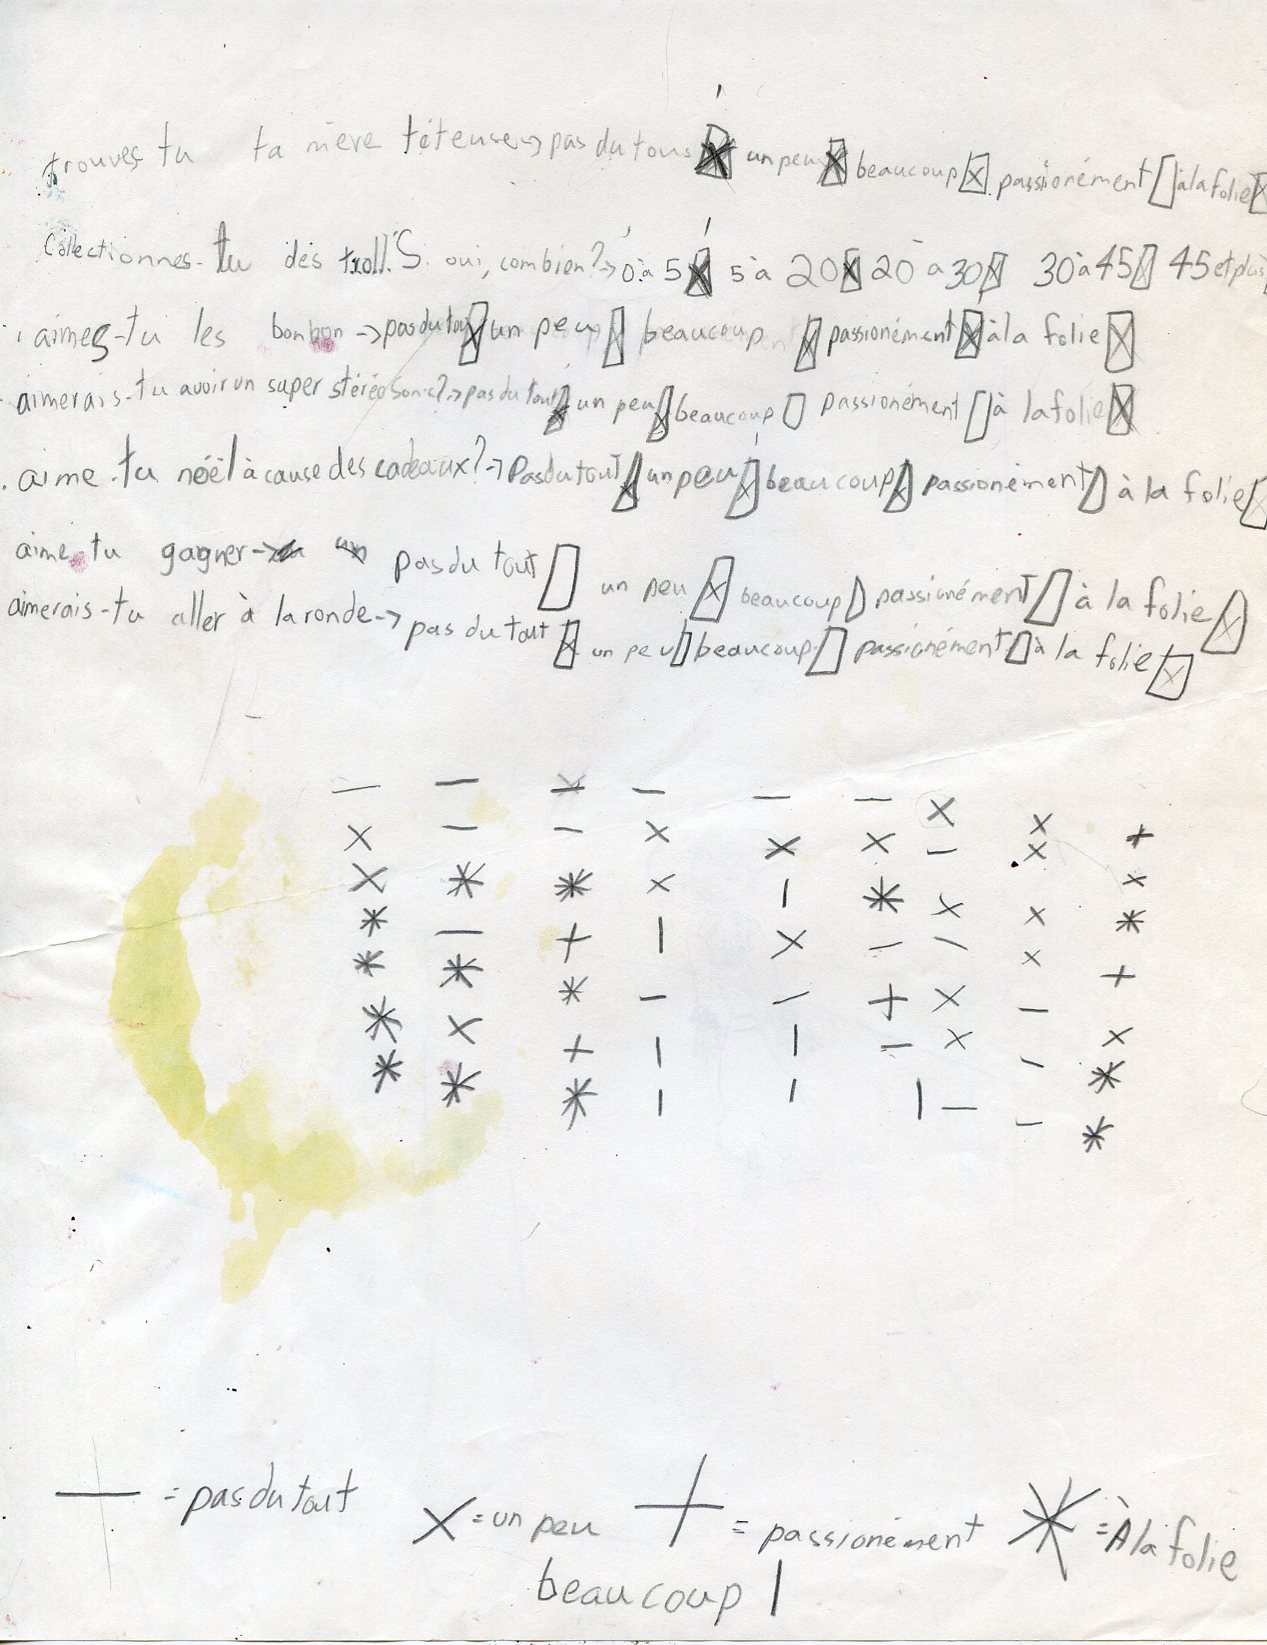 trouves tu ta mère téteuse→ pas du tous ☒ un peu ☒ beaucoup ☒ passionément ☐ à la folie ☒
Collectionnes-tu des troll'S. oui, combien?→ 0 à 5 ☒ 5 à 20 ☒ 20 à 30 ☒ 30 à 45 ☒ 45 et plus
aimes-tu les bonbon → pas du tout ☒ un peu ☒ beaucoup ☒ passionément ☒ à la folie ☒
aimerais-tu avoir un super stéréo sonic?→ pas du tout ☒ un peu ☒ beaucoup ☐ passionément ☐ à la folie ☒
aime-tu noël à cause des cadeaux?→ Pas du tout ☒ un peu ☒ beaucoup ☒ passionément ☐ à la folie ☒
aime tu gagner→ pas du tout ☐ un peu ☒ beaucoup ☐ passionément ☐ à la folie ☒
aimerais-tu aller à la ronde→ pas du tout ☒ un peu ☐ beaucoup ☐ passionément ☐ à la folie ☒
— — — — — — × × +
× — — × × × — × ×
× * * × | * × × *
* — + | × — — × +
* * * — — + × — ×
* × + | | — × — *
* * * | | | — — *
— = pas du tout
× = un peu
+ = passionément
* = À la folie
beaucoup |